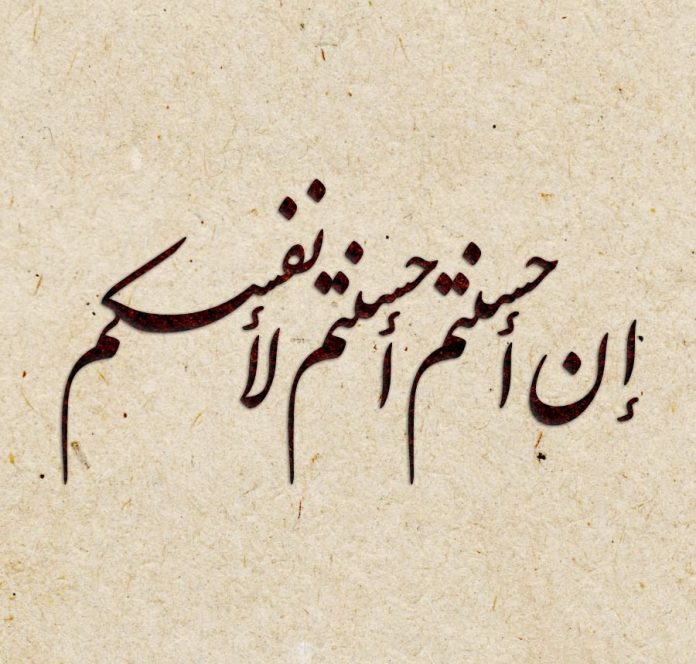 إن أحسنتم أحسنتم لأنفسكم